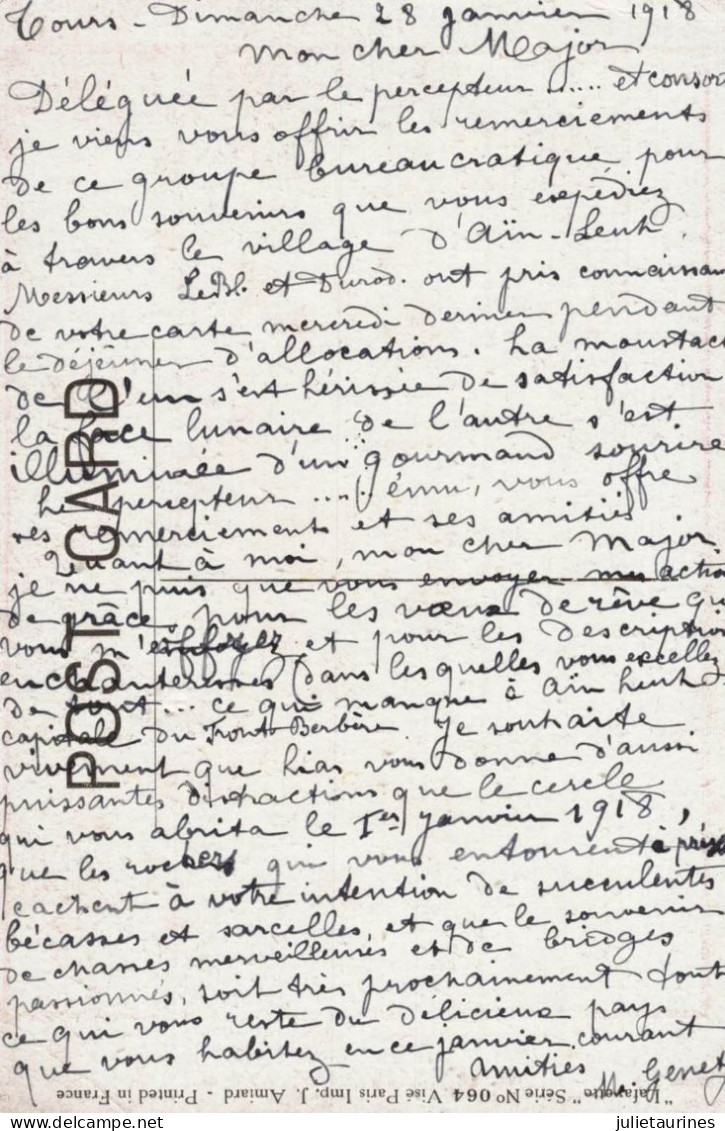 Tours - Dimanche 28 janvier 1918
Mon cher Major
Déléguée par le percepteur ...... et consor
je viens vous offrir les remerciements
de ce groupe bureaucratique pour
les bons souvenirs que vous expédiez
à travers le village d'Aïn-Leuh.
Messieurs LeBl. et Durod. ont pris connaissan
de votre carte mercredi dernier pendant
le déjeuner d'allocations. La moustac
de l'un s'est hérissée de satisfaction
la face lunaire de l'autre s'est
illuminée d'un gourmand sourire
Le percepteur ..... ému, vous offre
ses remerciements et ses amitiés
Quant à moi, mon cher Major
je ne puis que vous envoyer mes action
de grâce, pour les vœux de rêve que
vous m' et pour les description
enchanteresses (dans lesquelles vous excellez
de tout ... ce qui manque à Aïn Leuh
capitale du Front Berbère. Je souhaite
vivement que hias vous donne d'aussi
puissantes distractions que le cercle
qui vous abrita le 1er janvier 1918,
que les rochers qui vous entourent à prés
cachent à votre intention de succulentes
bécasses et sarcelles, et que le souvenir
de chasses merveilleuses et de bridges
passionnés, soit très prochainement tout
ce qui vous reste du délicieux pays
que vous habitez en ce janvier courant
Amitiés
M. Genet
POST CARD
"Lafayette" Série No 064 Visé Paris Imp. J. Amiard - Printed in France
DELCAMPE.NET
julietaurines